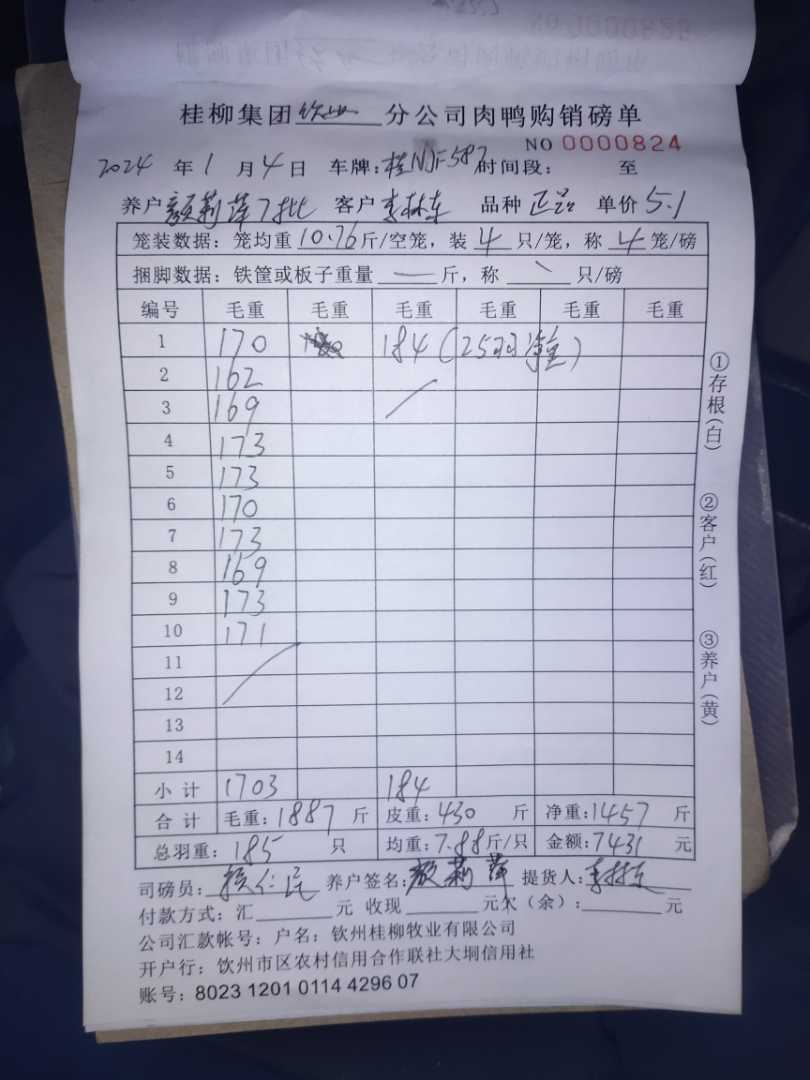 NO 0000825
桂柳集团钦州分公司肉鸭购销磅单
NO 0000824
2024 年 1 月 4 日 车牌:桂NJF587 时间段: 至
养户 颜莉萍7批 客户 李林东 品种 正品 单价 5.1
笼装数据:笼均重 10.76 斤/空笼,装 4 只/笼,称 4 笼/磅
捆脚数据:铁筐或板子重量 — 斤,称 只/磅
编号 毛重 毛重 毛重 毛重 毛重 毛重
1 170 184 (25羽净重)
2 162
3 169
4 173
5 173
6 170
7 173
8 169
9 173
10 171
11
12
13
14
小计 1703 184
合计 毛重:1887 斤 皮重:430 斤 净重:1457 斤
总羽重:185 只 均重:7.88斤/只 金额:7431 元
司磅员: 养户签名:颜莉萍 提货人:李林东
付款方式:汇 元 收现 元欠(余): 元
公司汇款帐号:户名:钦州桂柳牧业有限公司
开户行:钦州市区农村信用合作联社大垌信用社
账号:8023 1201 0114 4296 07
①存根(白)
②客户(红)
③养户(黄)